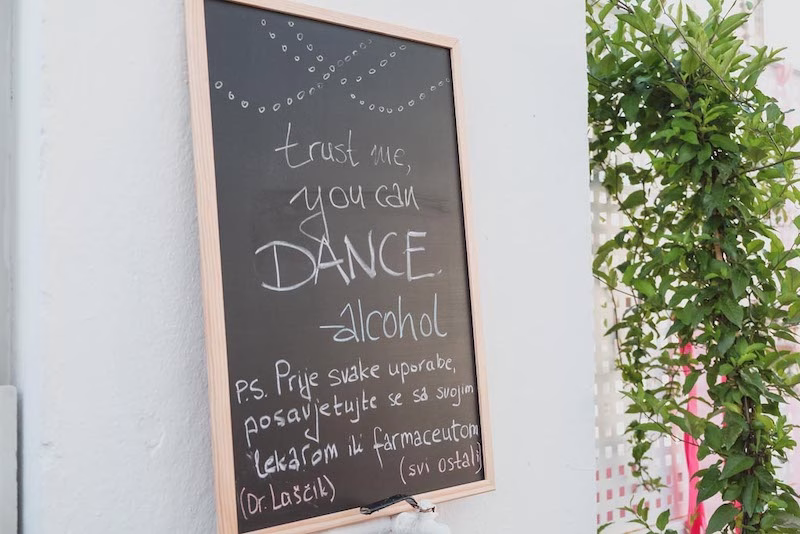 trust me,
you can
DANCE.
-alcohol
P.S. Prije svake uporabe,
posavjetujte se sa svojim
lekarom ili farmaceutom
(Dr. Laščik) (svi ostali)